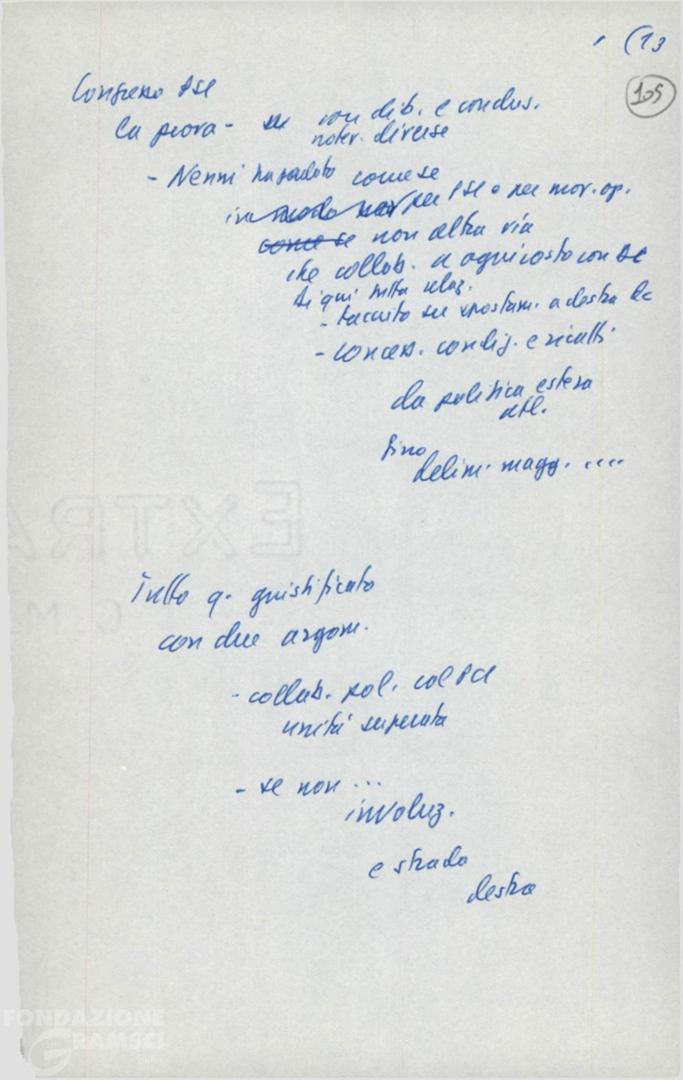 (13
105
Congresso PSI
la prova - su con dib. e conclus.
diverse
- Nenni ha parlato come se
in modo per PSI o per mov. op.
come se non altra via
che collab. a ogni costo con DC
di qui tutta relaz.
- taciuto su spostam. a destra DC
- conces. condiz. e ricatti
da politica estera
atl.
fino
delim. magg. ....
EXTRA
Tutto q. giustificato
con due argom.
- collab. pol. col PCI
unità superata
- se non ...
involuz.
e strada
destra
FONDAZIONE
GRAMSCI